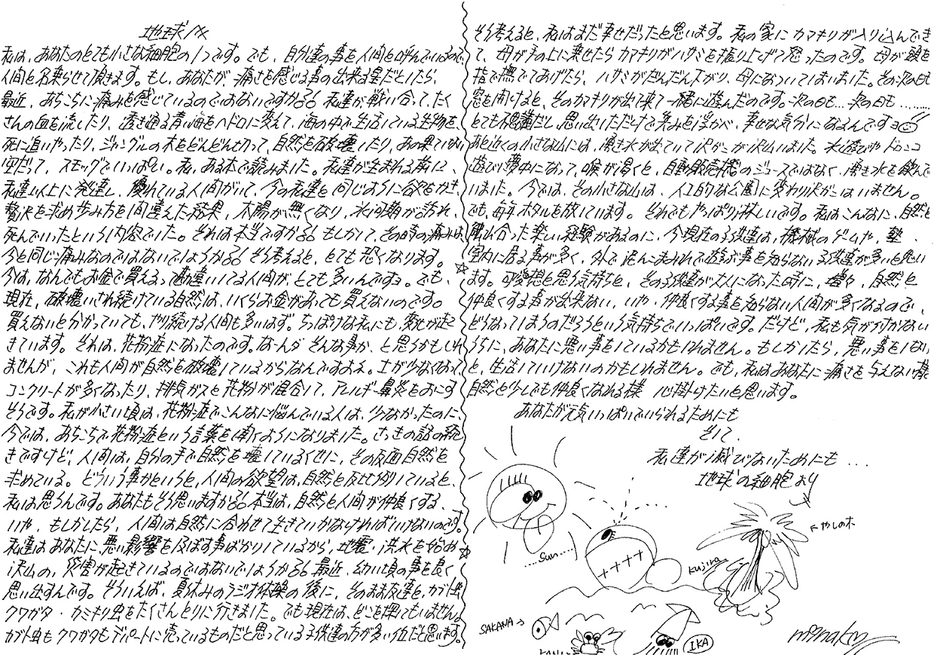 地球人へ
私は、あなたのとても小さな細胞の1つです。でも、自分達の事を人間と呼んでいるので
人間と名乗らせて頂きます。もし、あなたが、痛さを感じる事の出来る星だとしたら、
最近、あちこちに痛みを感じているのではないですか？私達が戦い合って、たく
さんの血を流したり、透き通る青い海をヘドロに変えて、海の中で生活している生物を、
死に追いやったり、ジャングルの木をどんどん切って、自然を破壊したり、あの果てない
空だって、スモッグでいっぱい。私、ある本で読みました。私達が生まれる前に、
私達以上に発達し、優れている人間がいて、今の私達と同じように合理化され、
贅沢を求め歩み方を間違えた結果、太陽が無くなり、氷河期が訪れ、
死んでいったという内容でした。それは本当ですか？もしかして、その時の痛みは、
今と同じ痛みなのではないでしょうか？そう考えると、とても恐くなります。
今は、なんでもお金で買えると勘違いしてる人間が、とても多いんですョ。でも、
現在、破壊され続けている自然は、いくらお金があっても買えないのです。
買えないと分かっていても、やり続ける人間も多いはず。ちっぽけな私にも、変化が起
きています。それは、花粉症になったのです。な〜んだそんな事か、と思うかもしれ
ませんが、これも人間が自然を破壊しているからなんですよネ。土が少なくなって
コンクリートが多くなったり、排気ガスと花粉が混合して、アレルギー鼻炎をおこす
そうです。私が小さい頃は、花粉症でこんなに悩んでいる人は、少なかったのに、
今では、あちこちで花粉症という言葉を聞くようになりました。さっきの話の続
きですけど、人間は、自分の手で自然を壊しているくせに、その反面自然を
求めている。どういう事かというと、人間の欲望は、自然を反比例していると、
私は思うんです。あなたもそう思いますか？本当は、自然と人間が仲良くする、
いや、もしかしたら、人間は自然に合わせて生きていかなければいけないのです。
私達はあなたに、悪い影響を及ぼす事ばかりしているから、地震・洪水を始め
沢山の、災害が起きているのではないでしょうか？最近、幼い頃の事を良く
思い出すんです。そういえば、夏休みのラジオ体操の後に、そのまま友達と、カブト虫
クワガタ・カミキリ虫をたくさんとりに行きました。でも現在は、どこを探してもいません。
カブト虫もクワガタもデパートに売っているものだと思っている子供達の方が多い位だと思います。
そう考えると、私はまだ幸せだったと思います。私の家にカマキリが入り込んでき
て、母が手の上に乗せたらカマキリがハサミを振り上げて怒ったのです。母が頭を
指で撫でてあげたら、ハサミがだんだん下がり、母になついてしまいました。その次の日も
窓を開けると、そのカマキリが出て来て一緒に遊んだのです。次の日も…次の日も………
とても不思議だし、思い出しただけで笑みを浮かべ、幸せな気分になるんですョ
お近くの小さな山には、湧き水が出ていて沢ガニが沢山いました。水遊びやドロンコ
遊びに夢中になって、喉が渇くと、自動販売機のジュースではなく、湧き水を飲んで
いました。今では、その小さな山は、人工的な公園に変わり沢ガニはいません。
でも、毎年ホタルを放しています。それでもやっぱり淋しいです。私はこんなに、自然と
触れ合った楽しい経験があるのに、今現在の子供達は、機械のゲームや、塾、
室内に居る事が多く、外で泥んこまみれで遊ぶ事を知らない子供達が多いと思い
ます。可愛想と思う気持ちと、その子供達が大人になった時に、増々、自然と
仲良くする事が出来ない、いや、仲良くする事を知らない人間が多くなるので、
どうなってしまうのだろうという気持ちでいっぱいです。だけど、私も気が付かない
うちに、あなたに悪い事をしているかもしれません。もしかしたら、悪い事をしない
と、生活していけないのかもしれません。でも、私はあなたに痛さを与えない様
自然と少しでも仲良くなれる様 心掛けたいと思います。
あなたが元気いっぱいでいられるためにも
そして、
私達が滅びないためにも…
地球の細胞より
Sun
Kujira
←やしの木
SAKANA→
KANI
IKA
minako